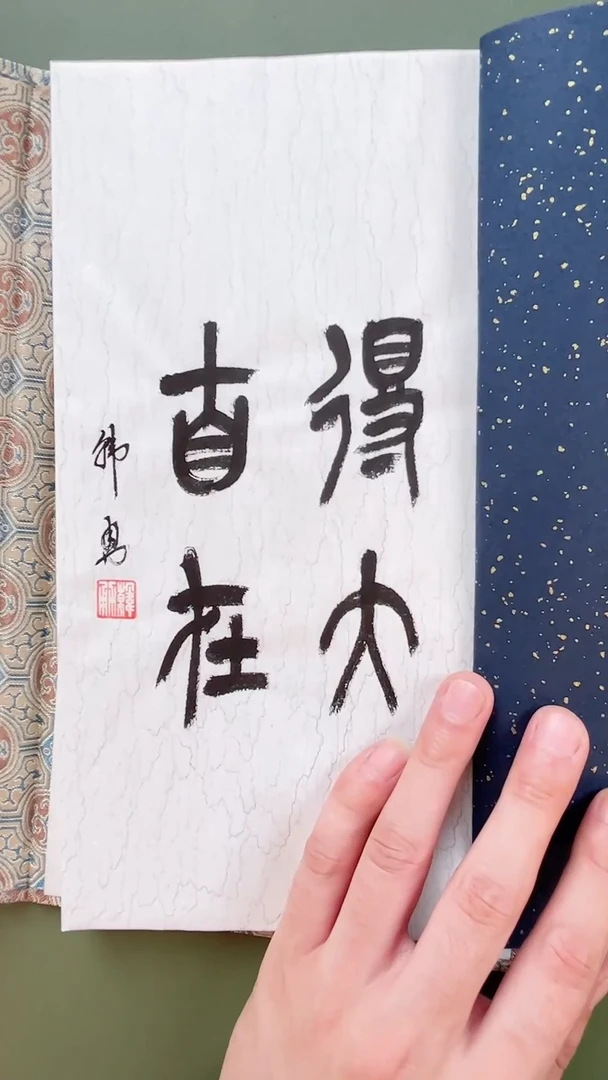 得大
自在
韩勇